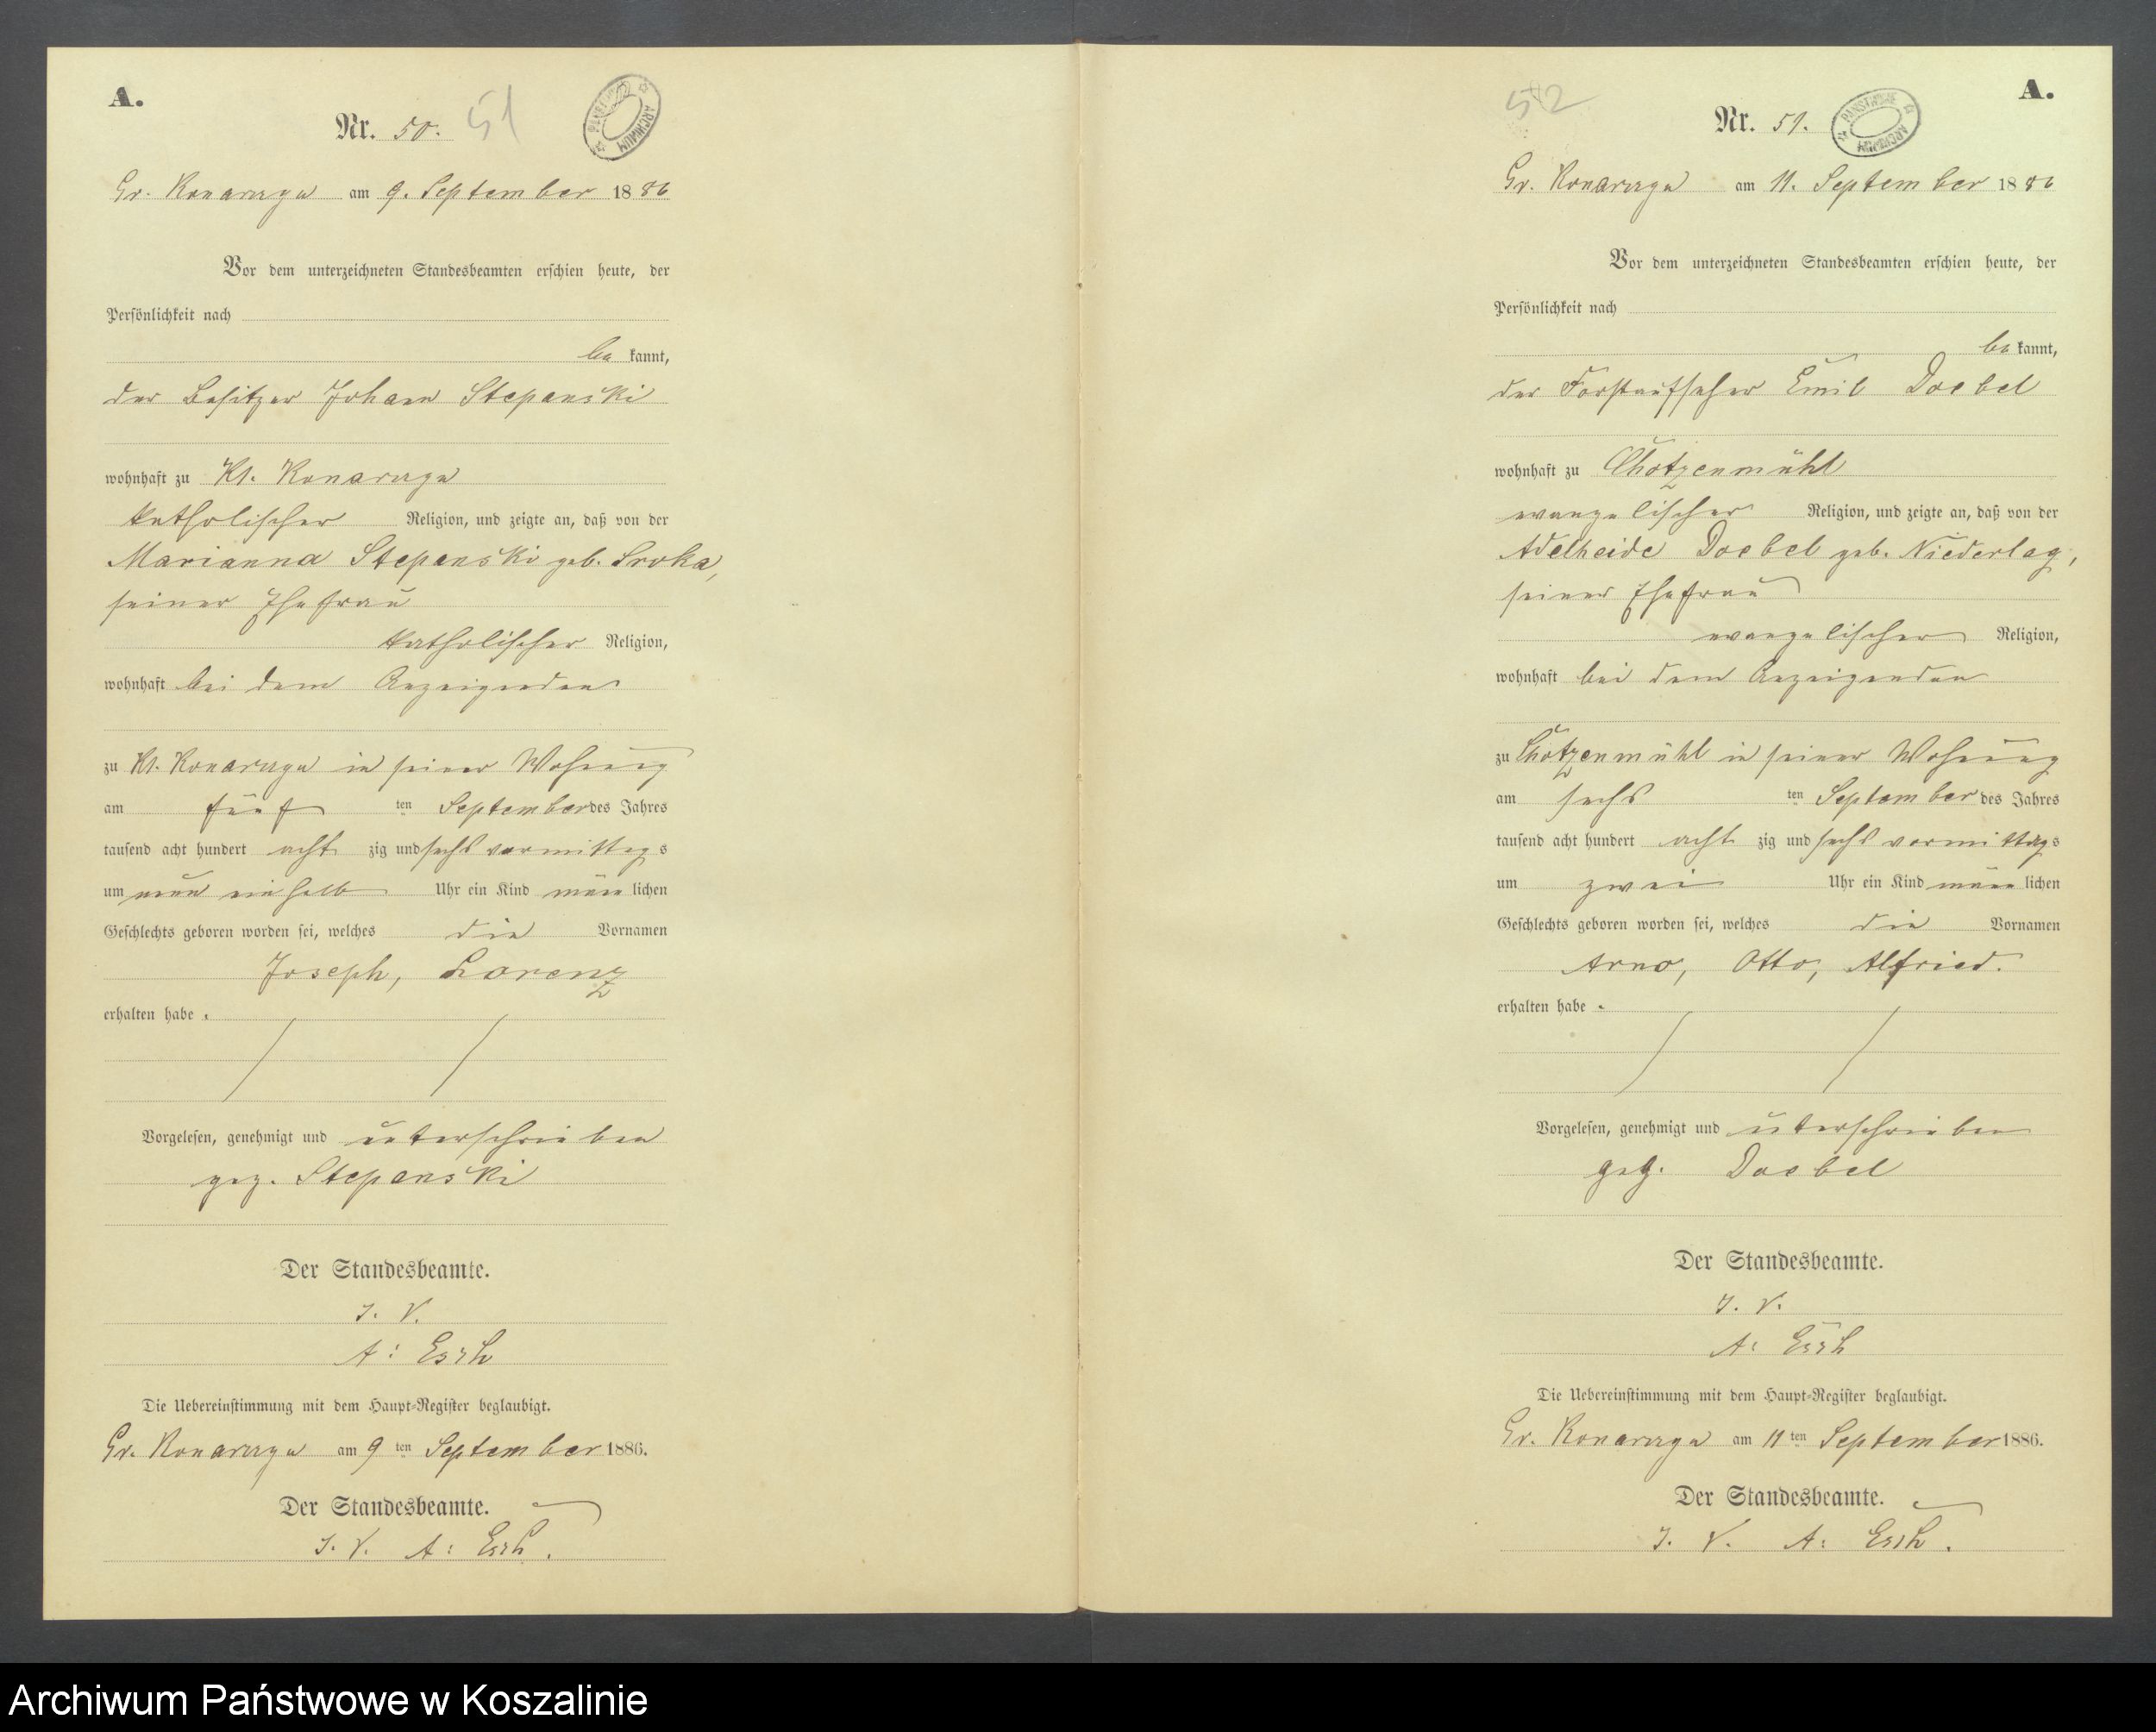 A.
Nr. 50. 51
PAŃSTWOWE ARCHIWUM
Gr. Konarczyn am 9. September 1886
Vor dem unterzeichneten Standesbeamten erschien heute, der
Persönlichkeit nach
be kannt,
der Besitzer Johann Stepanski
wohnhaft zu Kl. Konarczyn
katholischer Religion, und zeigte an, daß von der
Marianna Stepanski geb. Sroka,
seiner Ehefrau
katholischer Religion,
wohnhaft bei dem Anzeigenden
zu Kl. Konarczyn in seiner Wohnung
am fünf ten September des Jahres
tausend acht hundert acht zig und sechs vormittags
um neun ein halb Uhr ein Kind männ lichen
Geschlechts geboren worden sei, welches die Vornamen
Joseph, Lorenz
erhalten habe .
Vorgelesen, genehmigt und unterschrieben
gez. Stepanski
Der Standesbeamte.
J. V.
A: Esch
Die Uebereinstimmung mit dem Haupt-Register beglaubigt.
Gr. Konarczyn am 9 ten September 1886.
Der Standesbeamte.
J. V. A: Esch.
A.
52
Nr. 51.
PAŃSTWOWE ARCHIWUM
Gr. Konarczyn am 11. September 1886
Vor dem unterzeichneten Standesbeamten erschien heute, der
Persönlichkeit nach
be kannt,
der Forstaufseher Emil Doebel
wohnhaft zu Chotzenmühl
evangelischer Religion, und zeigte an, daß von der
Adelheide Doebel geb. Niederlag,
seiner Ehefrau
evangelischer Religion,
wohnhaft bei dem Anzeigenden
zu Chotzenmühl in seiner Wohnung
am sechs ten September des Jahres
tausend acht hundert acht zig und sechs vormittags
um zwei Uhr ein Kind männ lichen
Geschlechts geboren worden sei, welches die Vornamen
Arno, Otto, Alfried.
erhalten habe .
Vorgelesen, genehmigt und unterschrieben
gez. Doebel
Der Standesbeamte.
J. V.
A: Esch
Die Uebereinstimmung mit dem Haupt-Register beglaubigt.
Gr. Konarczyn am 11 ten September 1886.
Der Standesbeamte.
J. V. A: Esch.
Archiwum Państwowe w Koszalinie